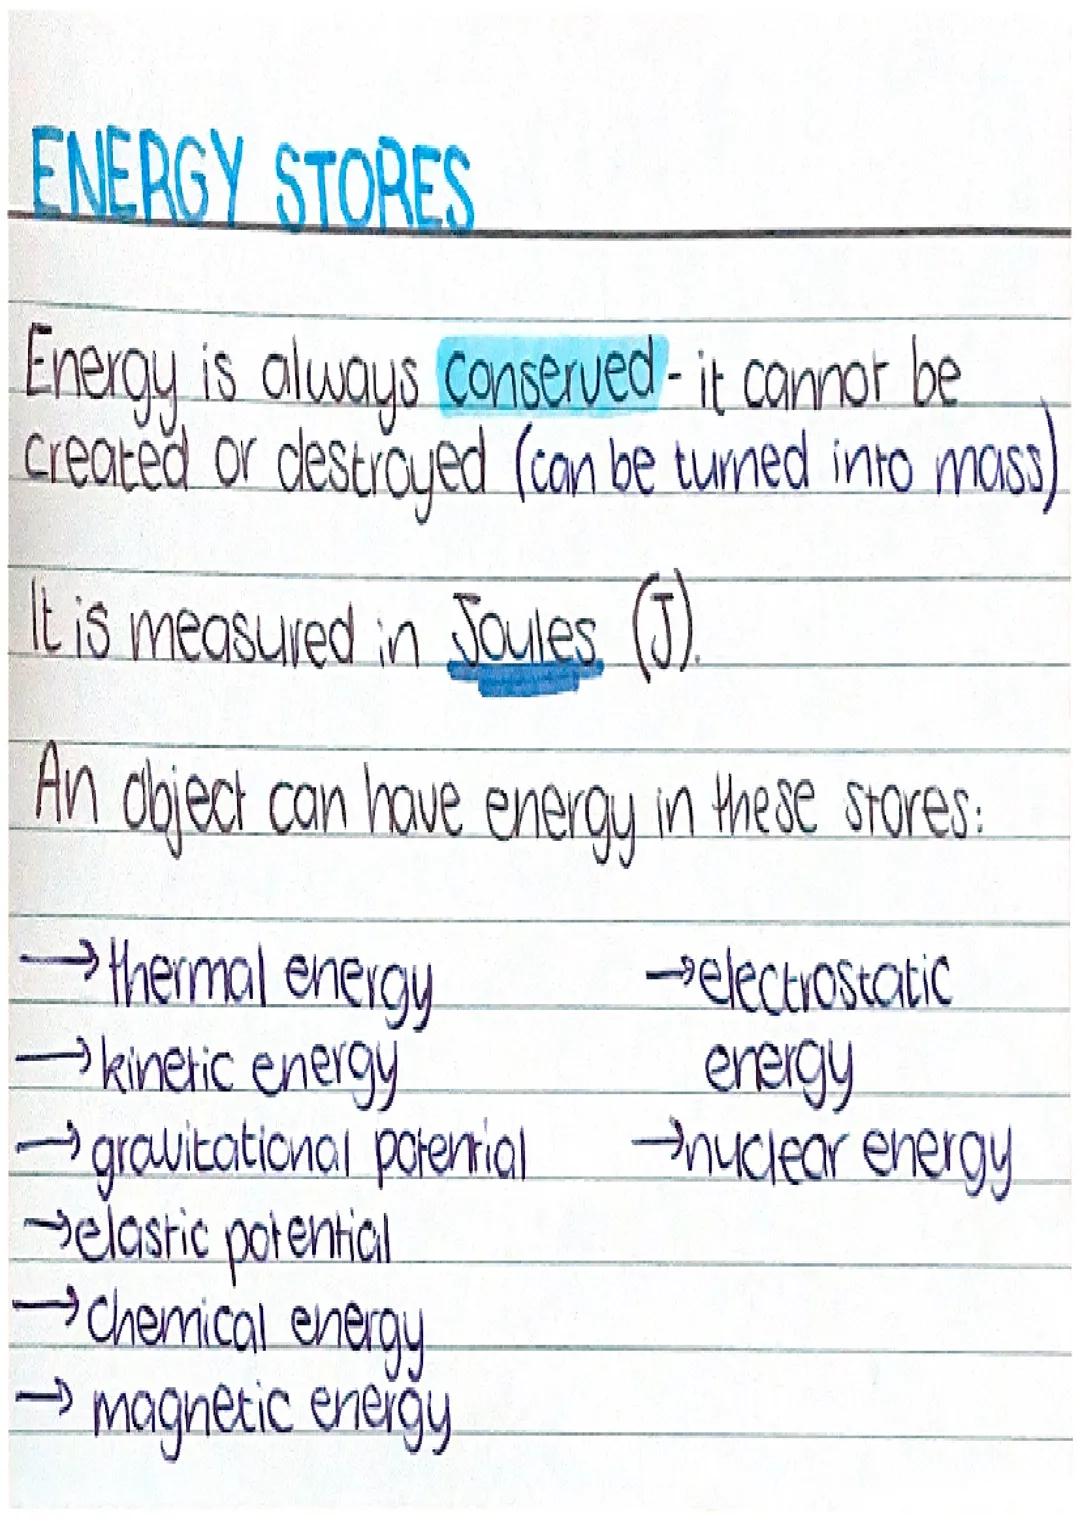 ENERGY STORES
Energy is always conserved - it cannot be
created or destroyed (can be turned into mass)
It is measured in Joules (J).
An object can have energy in these stores:
→ thermal energy
→ kinetic energy
→ gravitational potential
→ elastic potential
→ chemical energy
→ magnetic energy
→ electrostatic
energy
→ nuclear energy